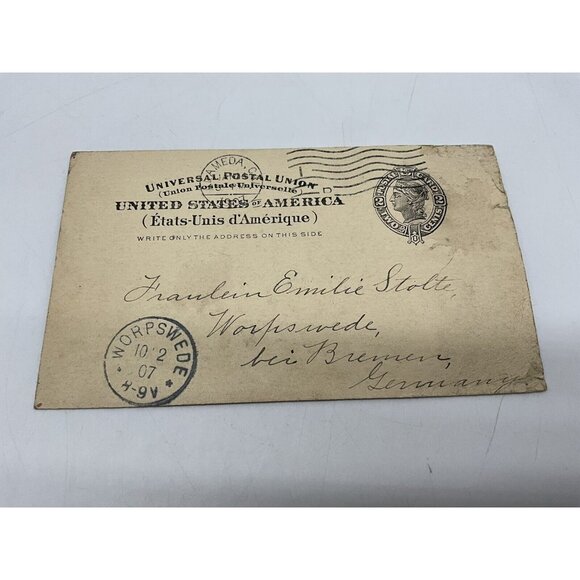 AMEDA, C
UNIVERSAL POSTAL UNION
(Union Postale Universelle)
UNITED STATES OF AMERICA
(États-Unis d'Amérique)
WRITE ONLY THE ADDRESS ON THIS SIDE
POSTAL CARD
TWO CENTS
2 2
D
Fraulein Emilie Stolte,
Worpswede,
bei Bremen,
Germany
WORPSWEDE
10 2
07